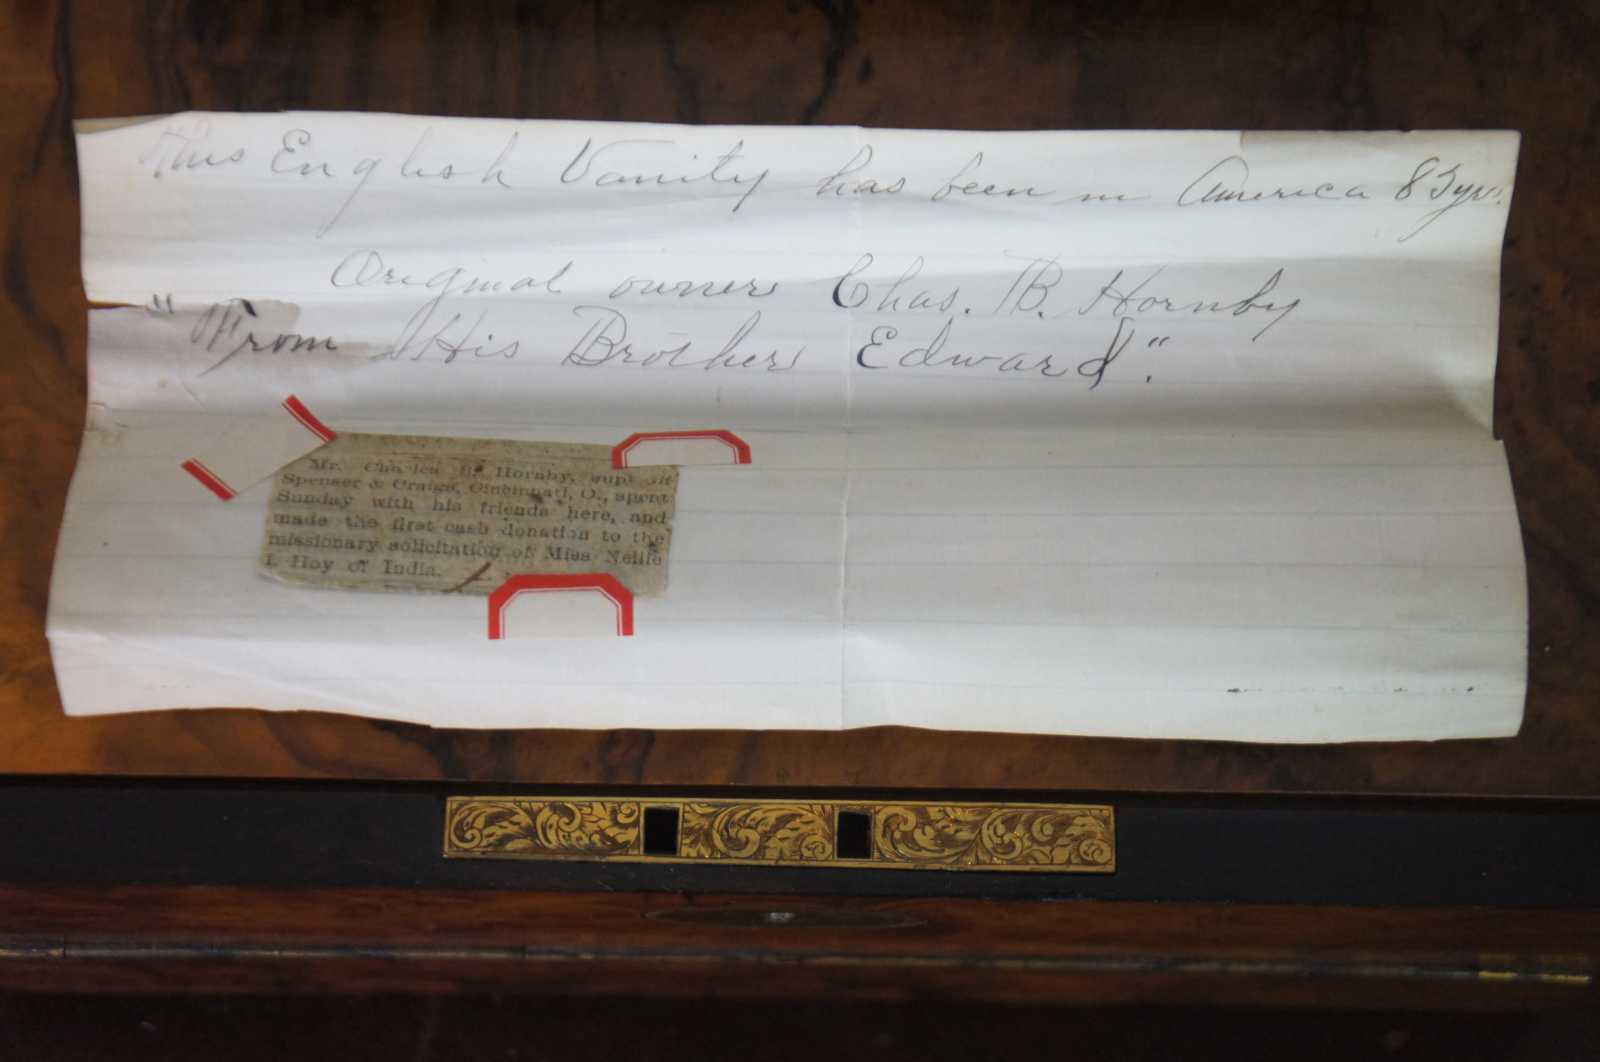 This English Vanity has been in America 85 yrs.
Original owner Chas. B. Hornby
"From His Brother Edward".
Mr. Charles B. Hornby, supt. of
Spenser & Craigs, Cincinnati, O., spent
Sunday with his friends here, and
made the first cash donation to the
missionary solicitation of Miss Nellie
I. Hoy of India.